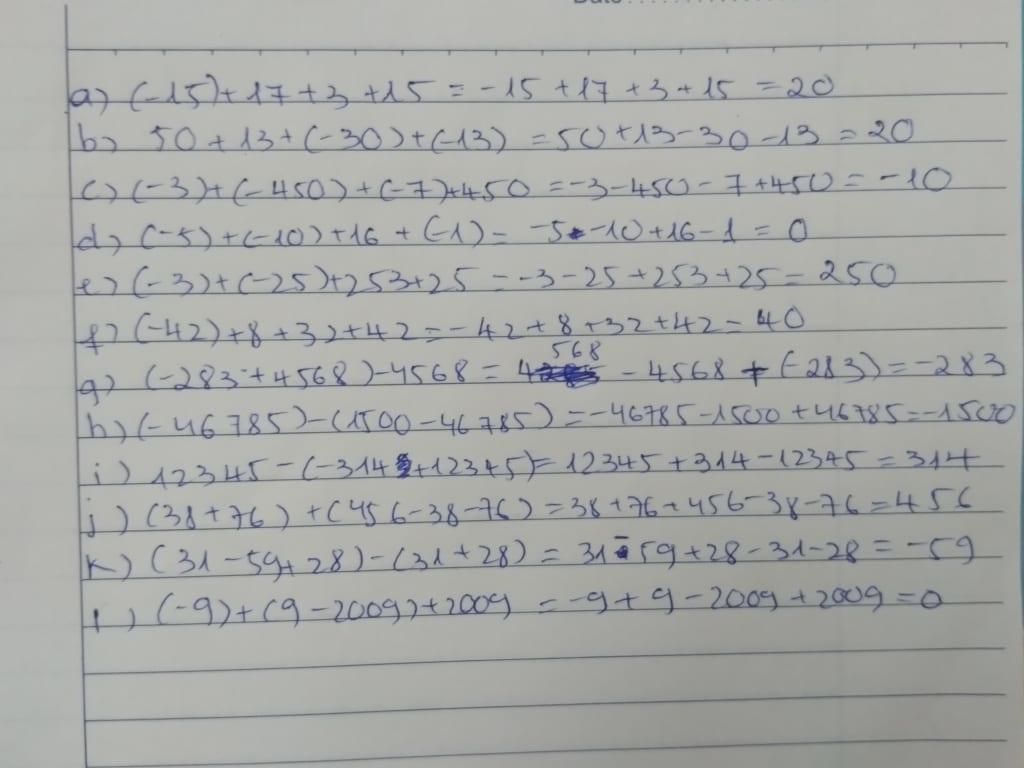 Date:...............
a) (-15)+17+3+15 = -15+17+3+15 = 20
b) 50+13+(-30)+(-13) = 50+13-30-13 = 20
c) (-3)+(-450)+(-7)+450 = -3-450-7+450 = -10
d) (-5)+(-10)+16+(-1) = -5-10+16-1 = 0
e) (-3)+(-25)+253+25 = -3-25+253+25 = 250
f) (-42)+8+32+42 = -42+8+32+42 = 40
g) (-283+4568)-4568 = 4568 - 4568 + (-283) = -283
h) (-46785)-(1500-46785) = -46785-1500+46785 = -1500
i) 12345-(-314+12345) = 12345+314-12345 = 314
j) (38+76)+(456-38-76) = 38+76+456-38-76 = 456
k) (31-59+28)-(31+28) = 31-59+28-31-28 = -59
l) (-9)+(9-2009)+2009 = -9+9-2009+2009 = 0